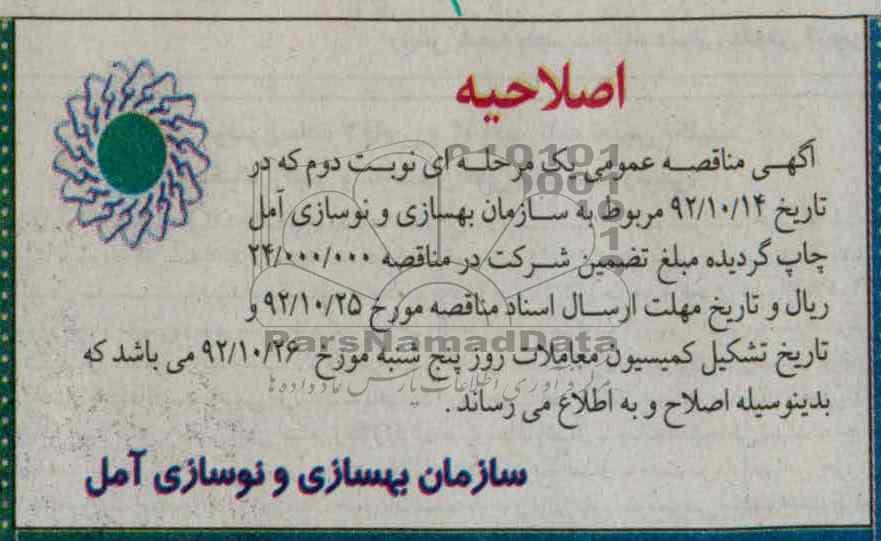 اصلاحیه
آگهی مناقصه عمومی یک مرحله ای نوبت دوم که در
تاریخ ۹۲/۱۰/۱۴ مربوط به سازمان بهسازی و نوسازی آمل
چاپ گردیده مبلغ تضمین شرکت در مناقصه ۲۴/۰۰۰/۰۰۰
ریال و تاریخ مهلت ارسال اسناد مناقصه مورخ ۹۲/۱۰/۲۵ و
تاریخ تشکیل کمیسیون معاملات روز پنج شنبه مورخ ۹۲/۱۰/۲۶ می باشد که
بدینوسیله اصلاح و به اطلاع می رساند.
سازمان بهسازی و نوسازی آمل
ParsNamadData